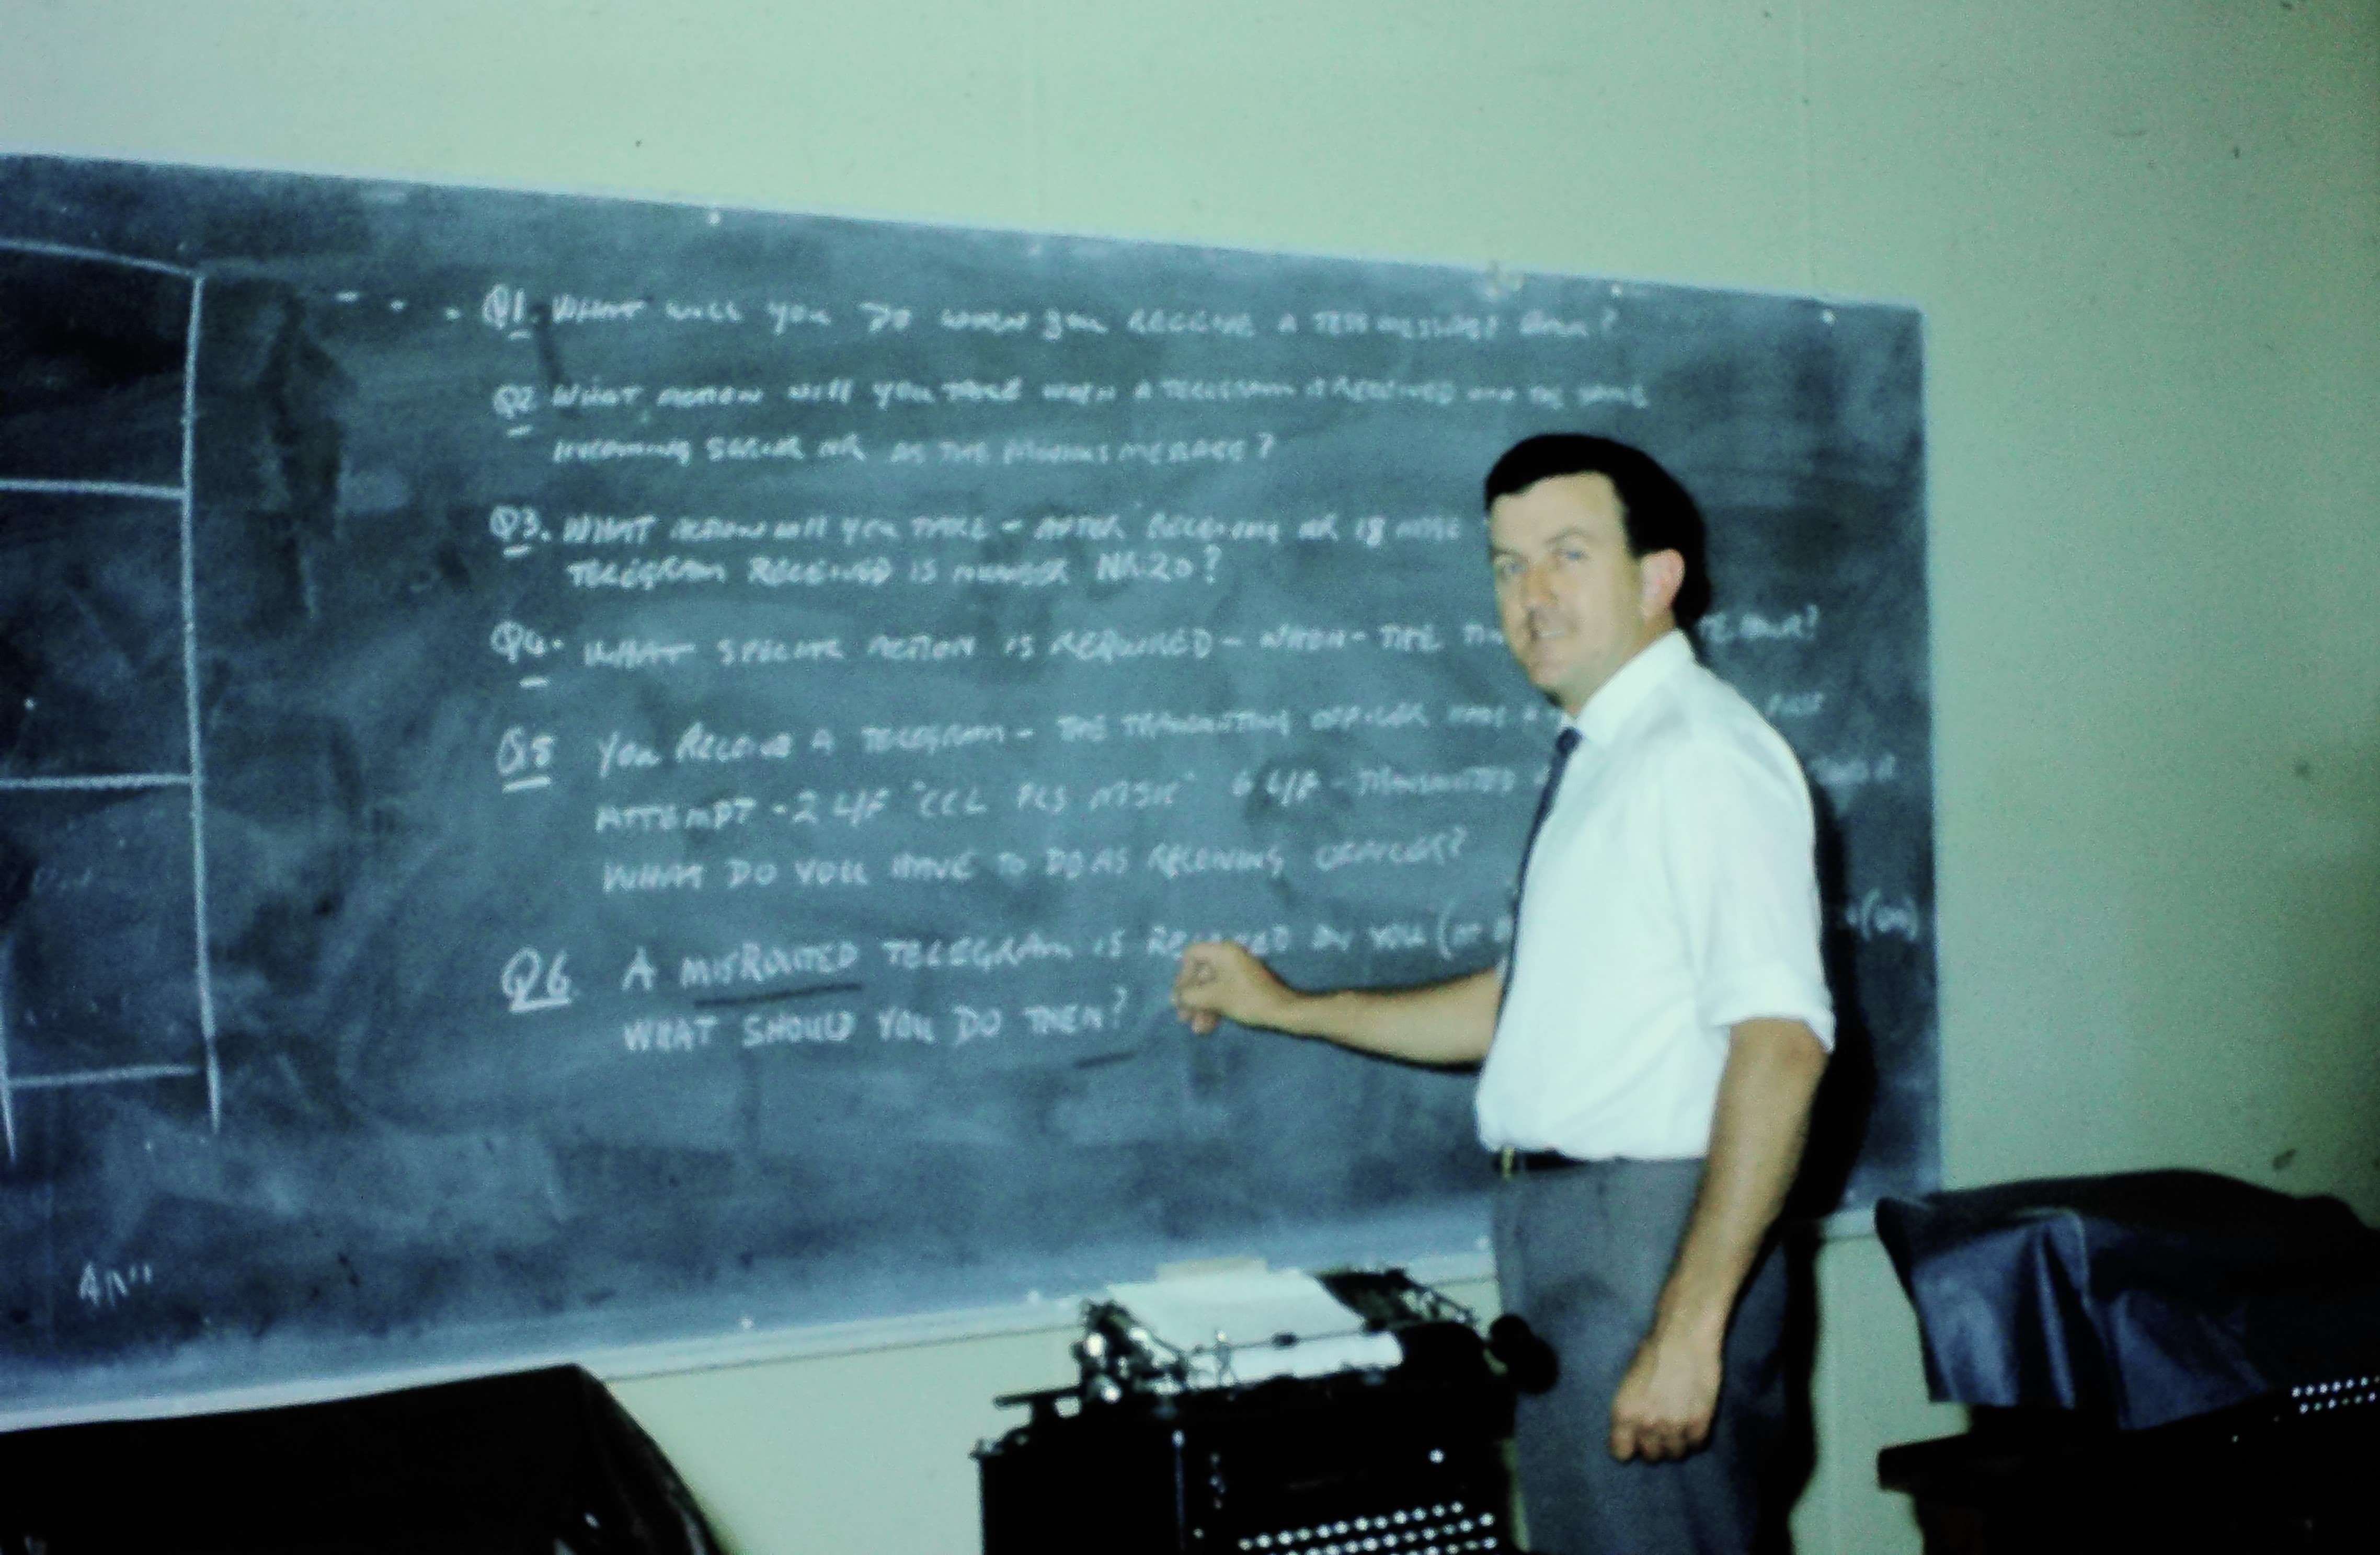 Q1. WHAT WILL YOU DO WHEN YOU RECEIVE A TEN MESSAGE
Q2 WHAT ACTION WILL YOU TAKE WHEN A TELEGRAM IS RECEIVED WITH THE SAME
INCOMING SERIAL NR AS THE PREVIOUS MESSAGE?
Q3. WHAT ACTION WILL YOU TAKE - AFTER RECEIVING NR 18
TELEGRAM RECEIVED IS NUMBER NR 20?
Q4. WHAT SPECIFIC ACTION IS REQUIRED - WHEN - THE
Q5 YOU RECEIVE A TELEGRAM - THE TRANSMITTING OFFICER
ATTEMPT - 2 L/F "CCL PLS MSK" 6 L/F - TRANSMITTED
WHAT DO YOU HAVE TO DO AS RECEIVING OFFICER?
Q6 A MISROUTED TELEGRAM IS RECEIVED BY YOU
WHAT SHOULD YOU DO THEN?